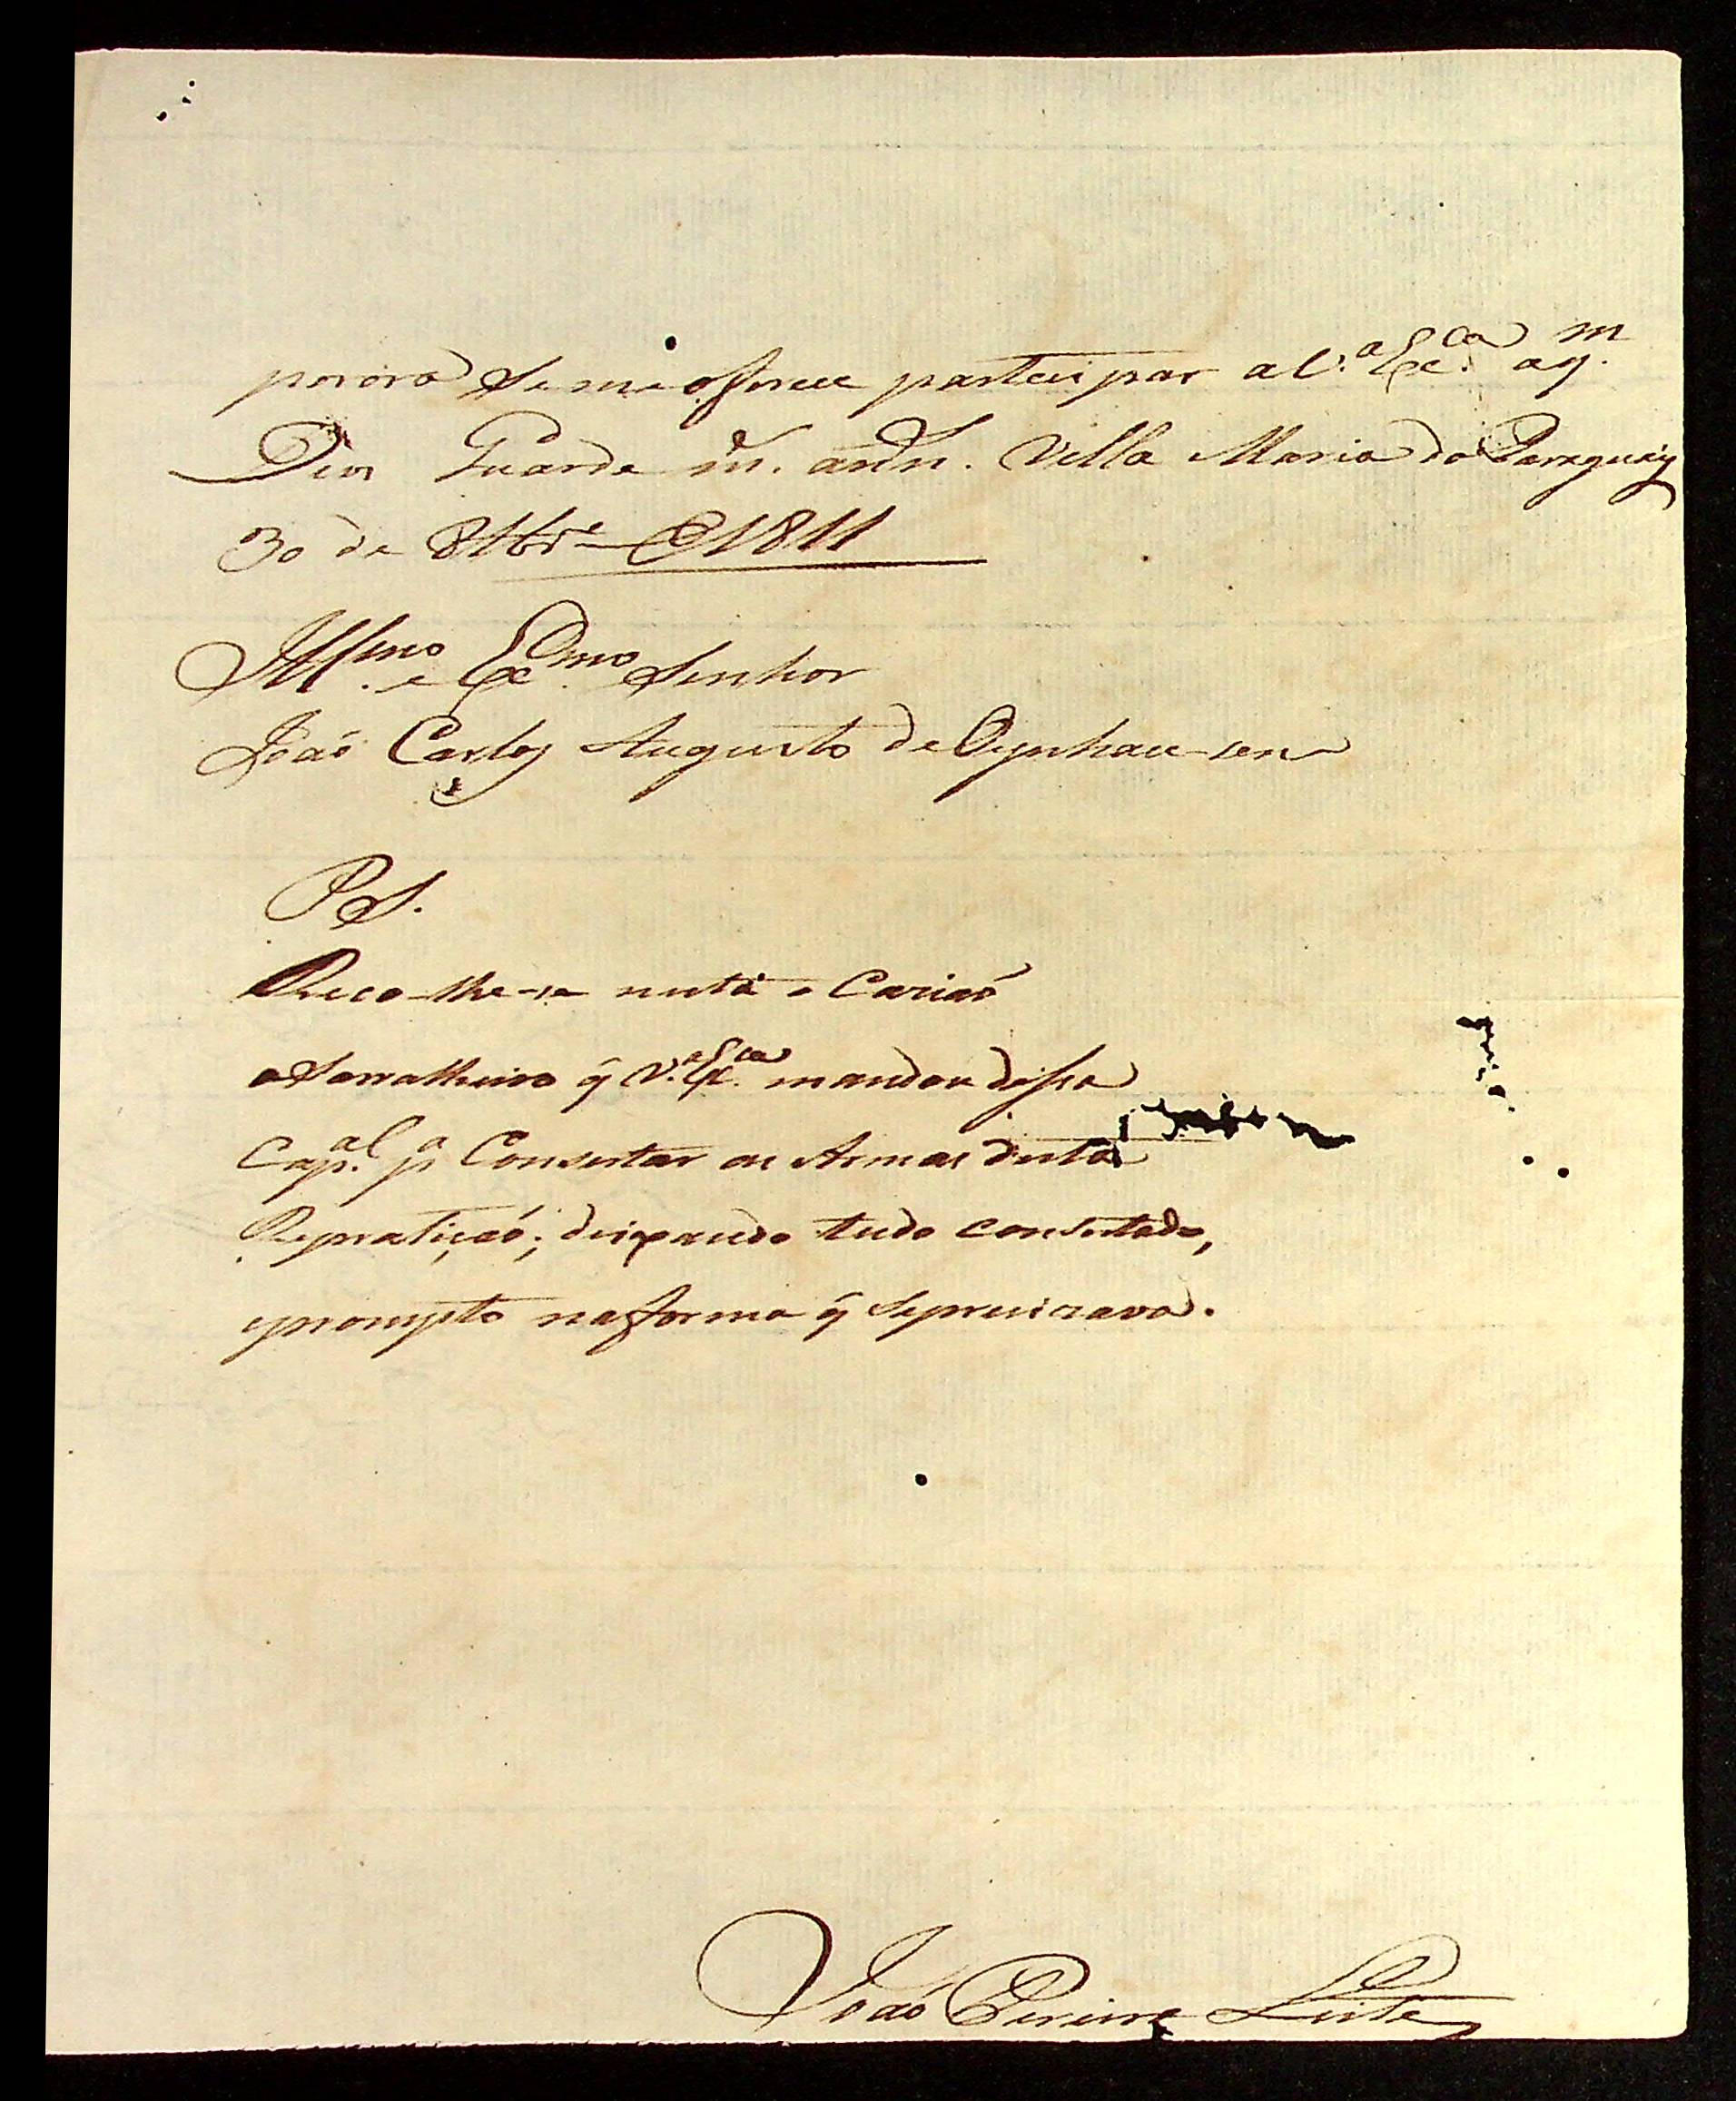 porora Se me offerece partecipar a V.ª Ex.ca a q.m
Deos Guarde m.s ann.s Villa Maria do Paraguay
30 de 8tbr.e de 1811
Ill.mo e Ex.mo Senhor
João Carlos Augusto de Oynhausen
P S.
Recolhe-se nesta o Cazião
o Sarralheiro q̃ V.ª Ex.ca mandou dessa
Cap.al p.a Consertar as Armas desta
Repratiçaõ; deixando tudo consertado,
eprompto naforma q̃ Seprecizava.
João Pereira Leite